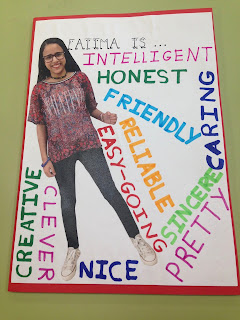 FATIMA IS ...
INTELLIGENT
HONEST
FRIENDLY
CARING
RELIABLE
EASY-GOING
SINCERE
PRETTY
CREATIVE
CLEVER
NICE